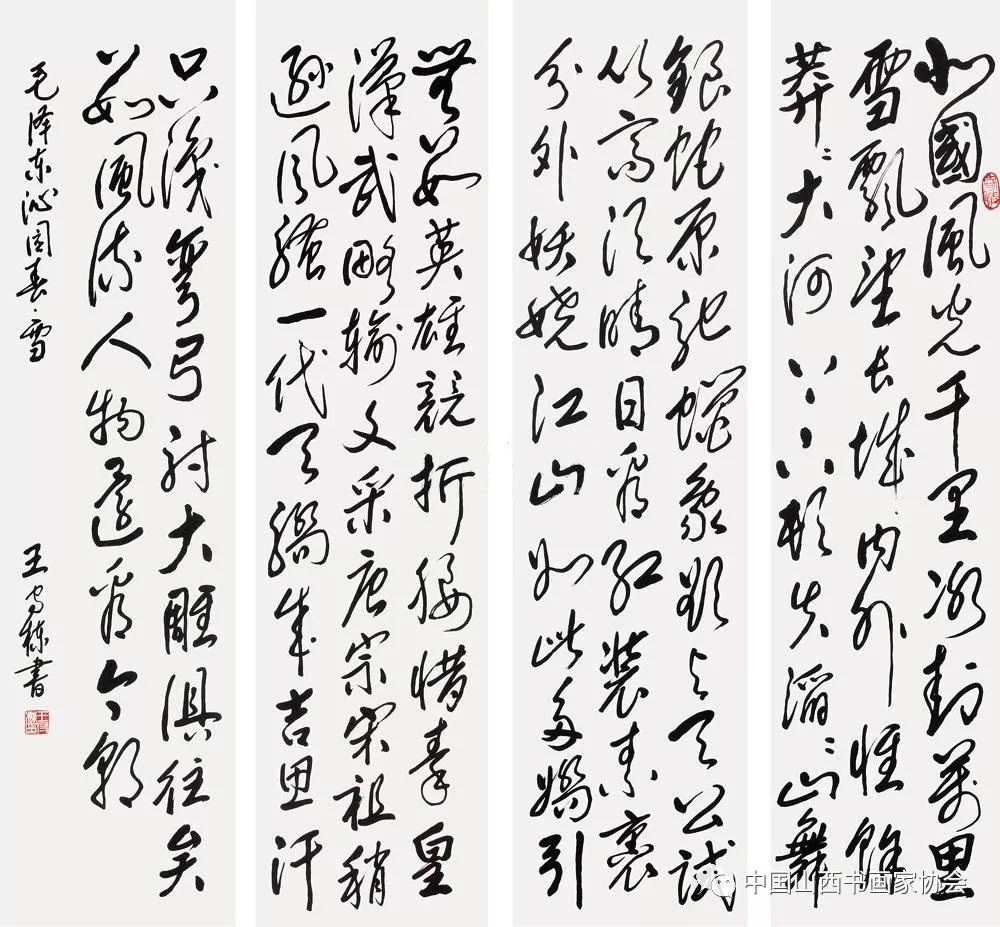 北國風光千里冰封萬里
雪飄望长城内外惟餘
莽〻大河上下顿失滔〻山舞
銀蛇原驰蠟象欲与天公試
比高须晴日看红裝素裹
分外妖娆江山如此多嬌引
無数英雄競折腰惜秦皇
漢武略输文采唐宗宋祖稍
遜风骚一代天驕成吉思汗
只識彎弓射大雕俱往矣
数風流人物還看今朝
毛泽东沁园春·雪
王栋書
中国山西书画家协会